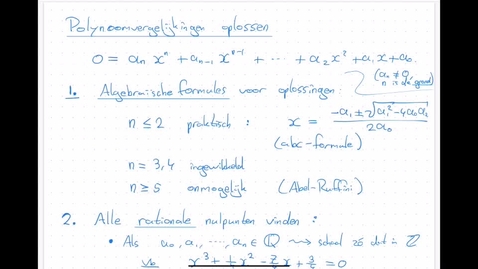 Polynoomvergelijkingen oplossen
0 = aₙ xⁿ + aₙ₋₁ xⁿ⁻¹ + ⋯ + a₂ x² + a₁ x + a₀.
(aₙ ≠ 0,
n is de graad)
1. Algebraïsche formules voor oplossingen:
n ≤ 2 praktisch : x = (−a₁ ± √(a₁² − 4a₀a₂)) / 2a₀
(abc-formule)
n = 3, 4 ingewikkeld
n ≥ 5 onmogelijk (Abel-Ruffini)
2. Alle rationale nulpunten vinden :
• Als a₀, a₁, ⋯, aₙ ∈ ℚ ⇝ schaal zó dat in ℤ
Vb x³ + x² − x + = 0